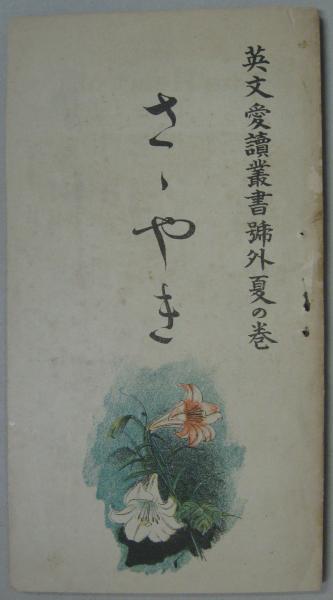 英文愛讀叢書號外夏の巻
さゝやき